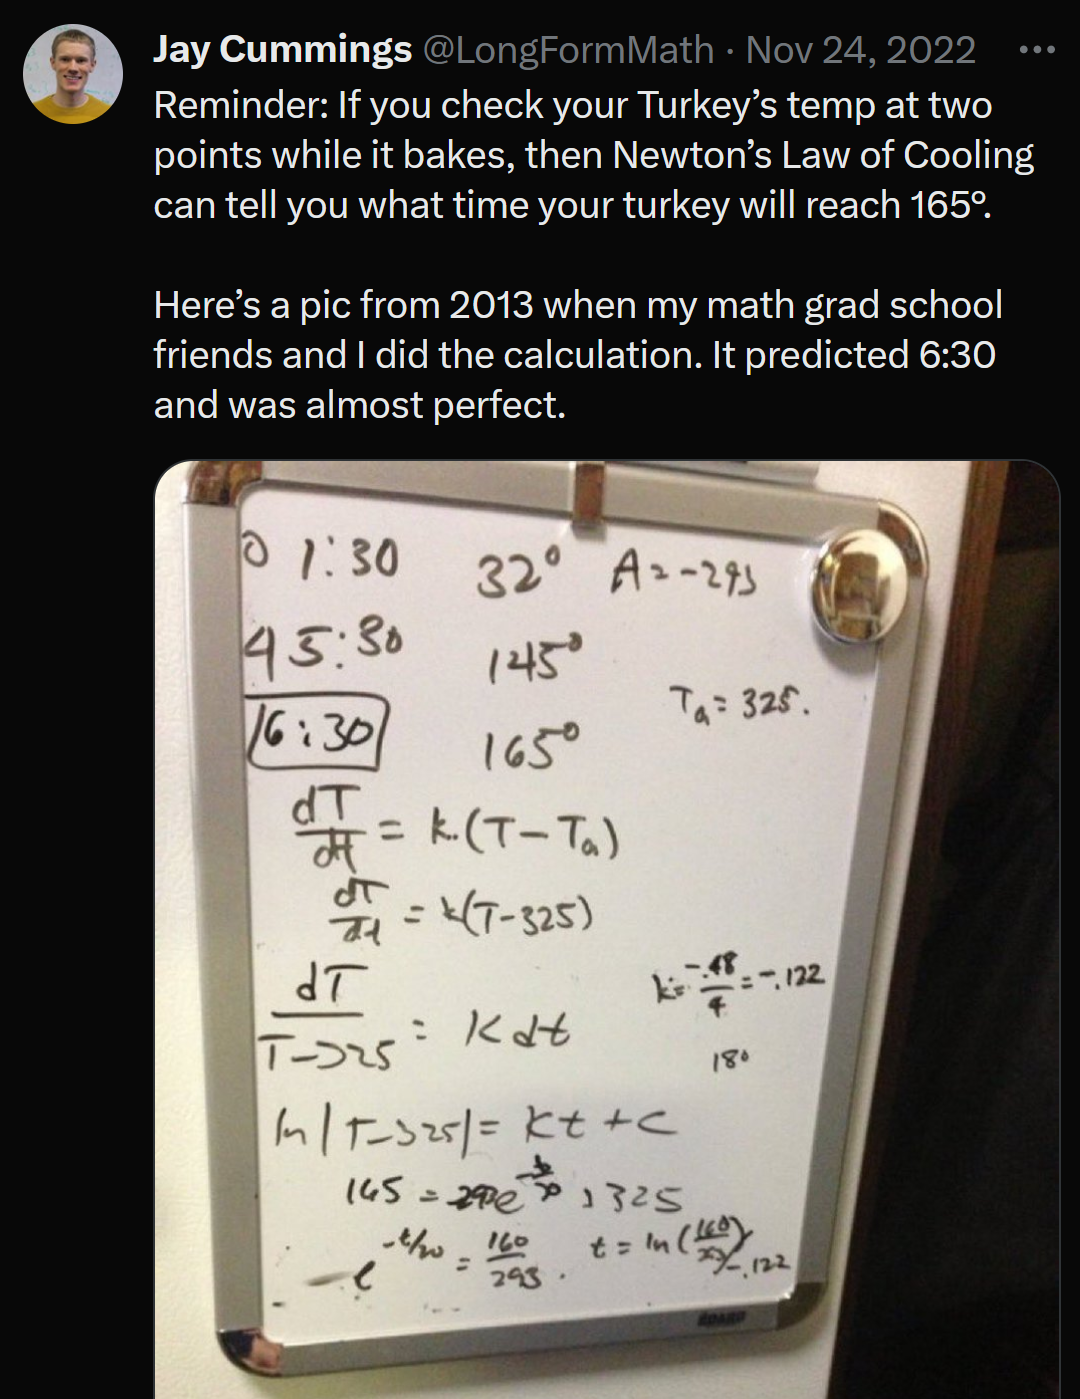 Jay Cummings @LongFormMath · Nov 24, 2022
Reminder: If you check your Turkey’s temp at two
points while it bakes, then Newton’s Law of Cooling
can tell you what time your turkey will reach 165º.
Here’s a pic from 2013 when my math grad school
friends and I did the calculation. It predicted 6:30
and was almost perfect.
0 1:30 32° A = -293
4 5:30 145°
Ta = 325.
6:30 165°
dT/dt = k.(T-Ta)
dT/dt = k(T-325)
k = -.48/4 = -.122
dT/T-325 = k dt
180
ln|T-325| = kt + c
165 = e 325
e^-t/20 = 160/293. t = ln(160/293)/-.122